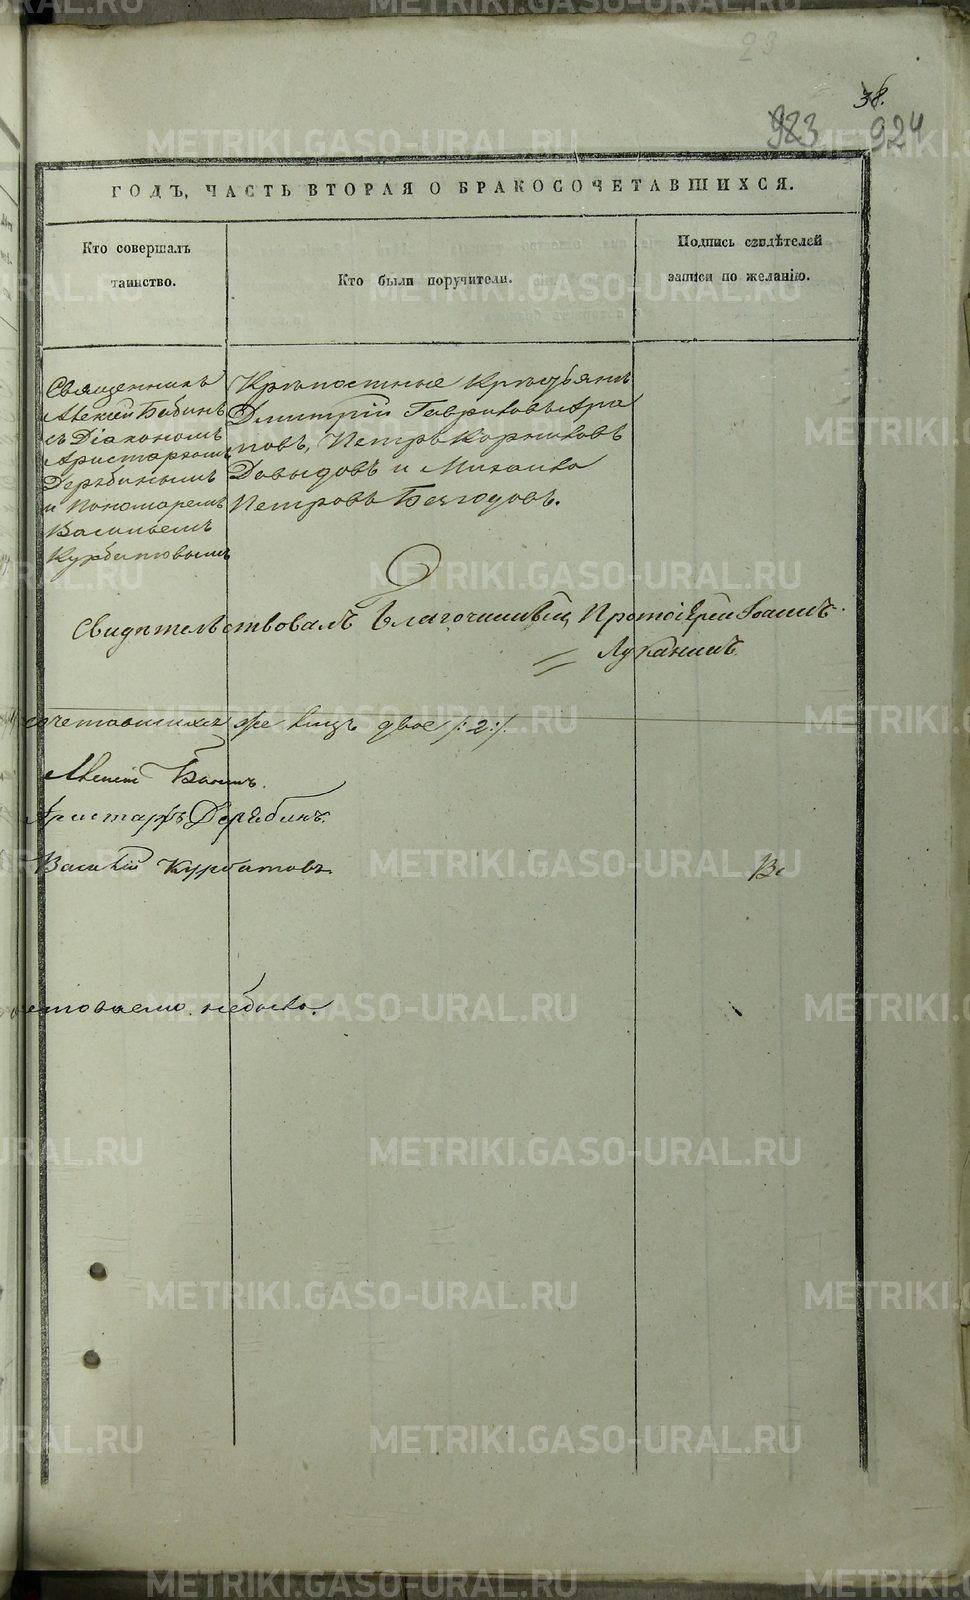 38.
983 924
ГОДЪ, ЧАСТЬ ВТОРАЯ О БРАКОСОЧЕТАВШИХСЯ.
Кто совершалъ
таинство.
Кто были поручители.
Подпись свидѣтелей
записи по желанію.
Священникъ
Алексій Бабинъ
съ Діакономъ
Аристархомъ
Дерябинымъ
и Пономаремъ
Васильемъ
Курбатовымъ
Крѣпостные Крестьяне
Дмитрій Гавриловъ Ара
повъ, Петръ Корниловъ
Давыдовъ и Михайло
Петровъ Безгодовъ.
Свидѣтельствовалъ Благочинный, Протоіерей Іоаннъ
Луканинъ
сочетавшихся же лицъ двое /:2:/.
Алексій Бабинъ.
Аристархъ Дерябинъ.
Василій Курбатовъ
Вс
небыло.
METRIKI.GASO-URAL.RU